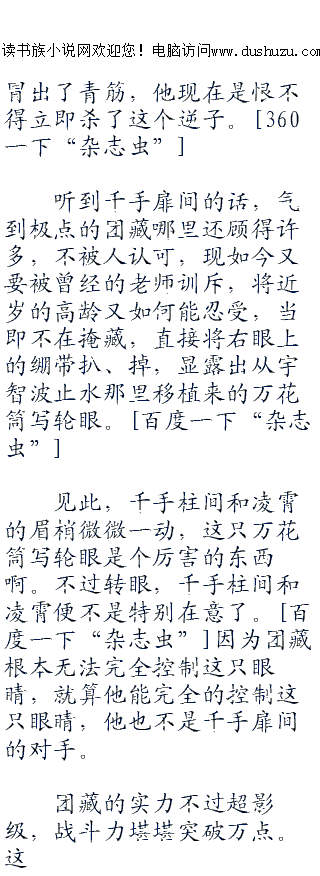 读书族小说网欢迎您！电脑访问www.dushuzu.com
冒出了青筋，他现在是恨不
得立即杀了这个逆子。[360
一下“杂志虫”]
听到千手扉间的话，气
到极点的团藏哪里还顾得许
多，不被人认可，现如今又
要被曾经的老师训斥，将近
岁的高龄又如何能忍受，当
即不在掩藏，直接将右眼上
的绷带扒、掉，显露出从宇
智波止水那里移植来的万花
筒写轮眼。[百度一下“杂志
虫”]
见此，千手柱间和凌霄
的眉梢微微一动，这只万花
筒写轮眼是个厉害的东西
啊。不过转眼，千手柱间和
凌霄便不是特别在意了。[百
度一下“杂志虫”]因为团藏
根本无法完全控制这只眼
睛，就算他能完全的控制这
只眼睛，他也不是千手扉间
的对手。
团藏的实力不过超影
级，战斗力堪堪突破万点。
这